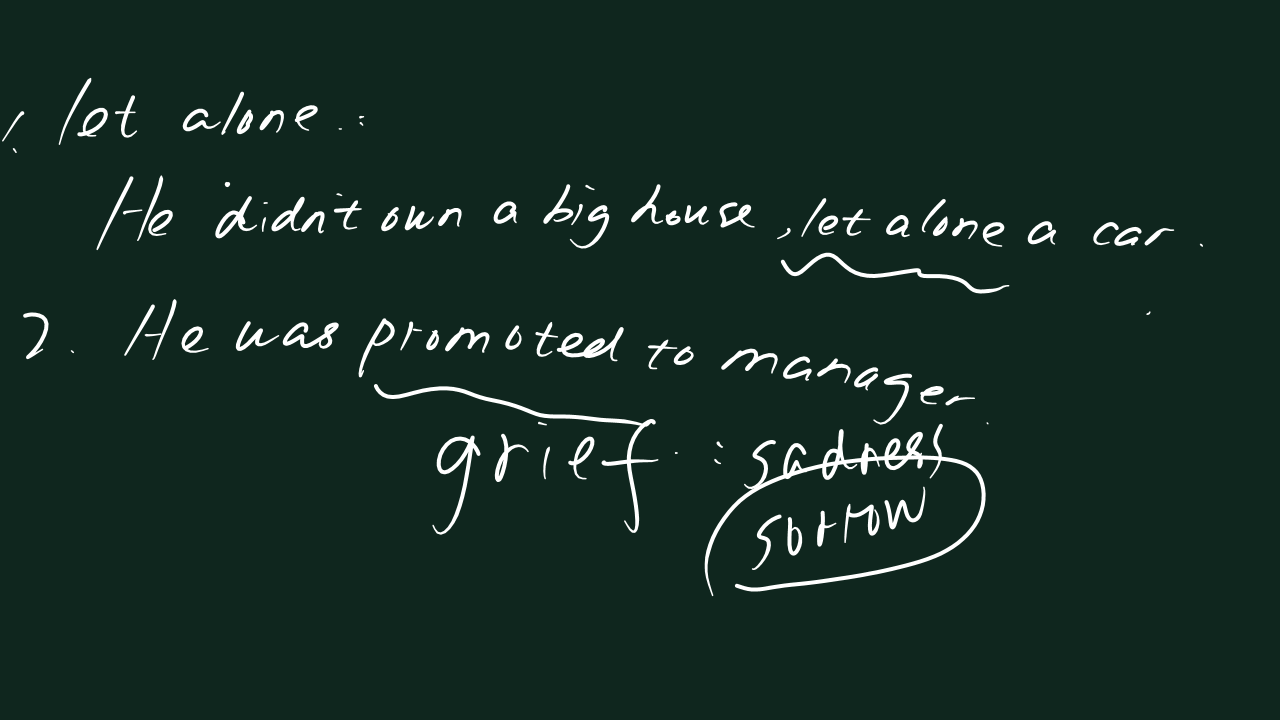 1. let alone :
He didn't own a big house, let alone a car.
2. He was promoted to manager.
grief : sadness
sorrow